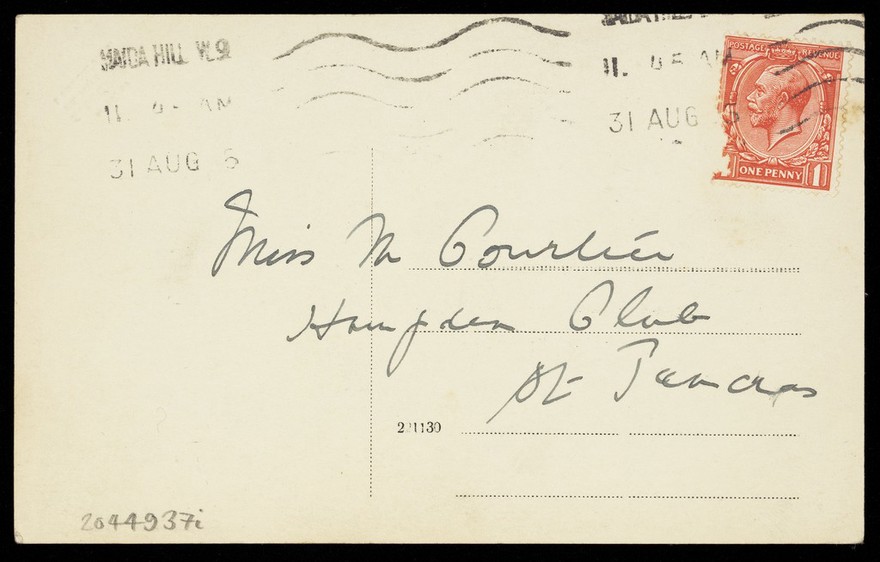 MAIDA HILL W.9
11. 45 AM
31 AUG 5
11. 45 AM
31 AUG 5
POSTAGE REVENUE
ONE PENNY 1
Miss M Courlié
Hampden Club
St Pancras
221130
2044937i